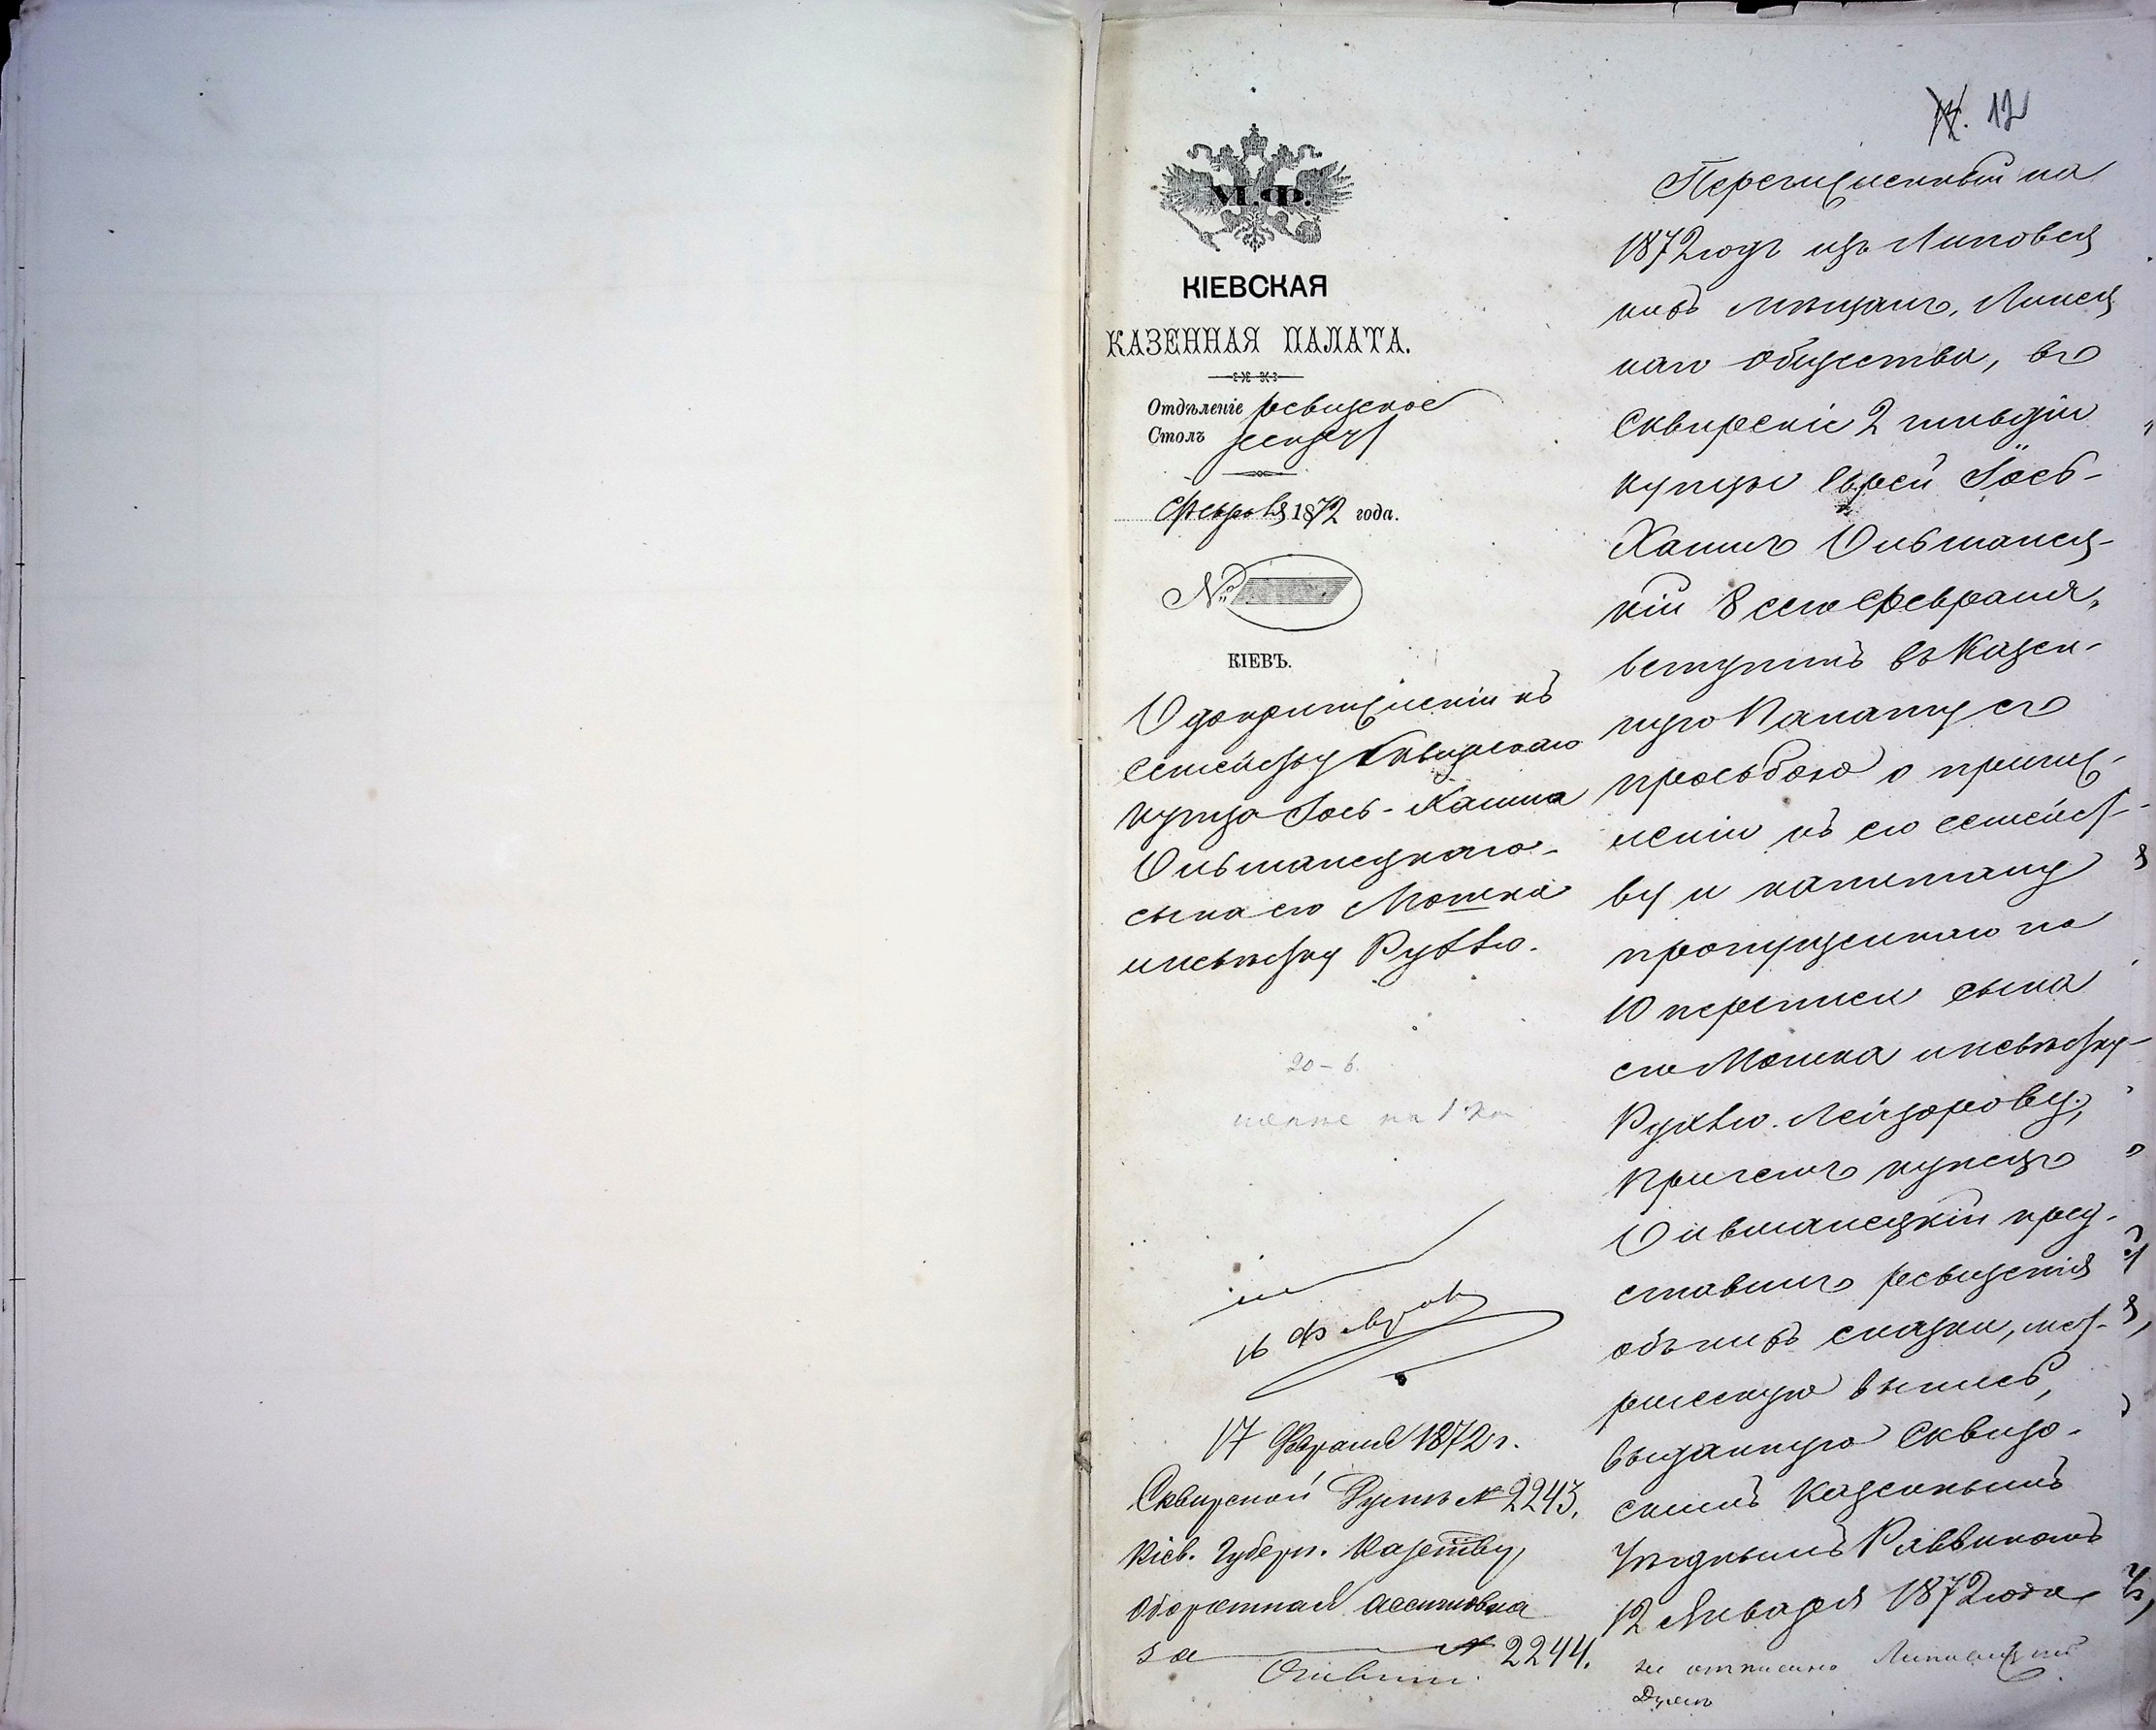 12
М.Ф.
КІЕВСКАЯ
КАЗЕННАЯ ПАЛАТА.
Отдѣленіе ревизское
Столъ
Февраля 1872 года.
№
КІЕВЪ.
О допричисленіи къ
семейству Сквирскаго
купца Іось-Хаима
Ольшанецкаго
сына его Мошка
и невѣстку Рухлю.
20-6.
16 Февраля
17 Февраля 1872 г.
Сквирской Думѣ № 2243.
Кіев. Губерн. Казнчву,
оборотная ассигновка
за № 2244.
Перечисленный на
1872 годъ изъ Липовец
кихъ мѣщанъ, Линец
каго общества, въ
Сквирскіе 2 гильдіи
купцы Еврей Іось-
Хаимъ Ольшанец-
кій 8 сего Февраля,
вступилъ въ Казен-
ную Палату съ
просьбою о причис-
леніи къ его семейст-
ву и капиталу
пропущеннаго по
10 переписи сына
его Мошка и невѣстку
Рухлю Лейзорову;
Причемъ купецъ
Ольшанецкій пред-
ставилъ ревизскія
объ нихъ сказки, мет-
рическую выпись,
выданную Сквир-
скимъ Казеннымъ
Уѣзднымъ Раввиномъ
12 Января 1872 года
не отписано Липовецкой
Думѣ